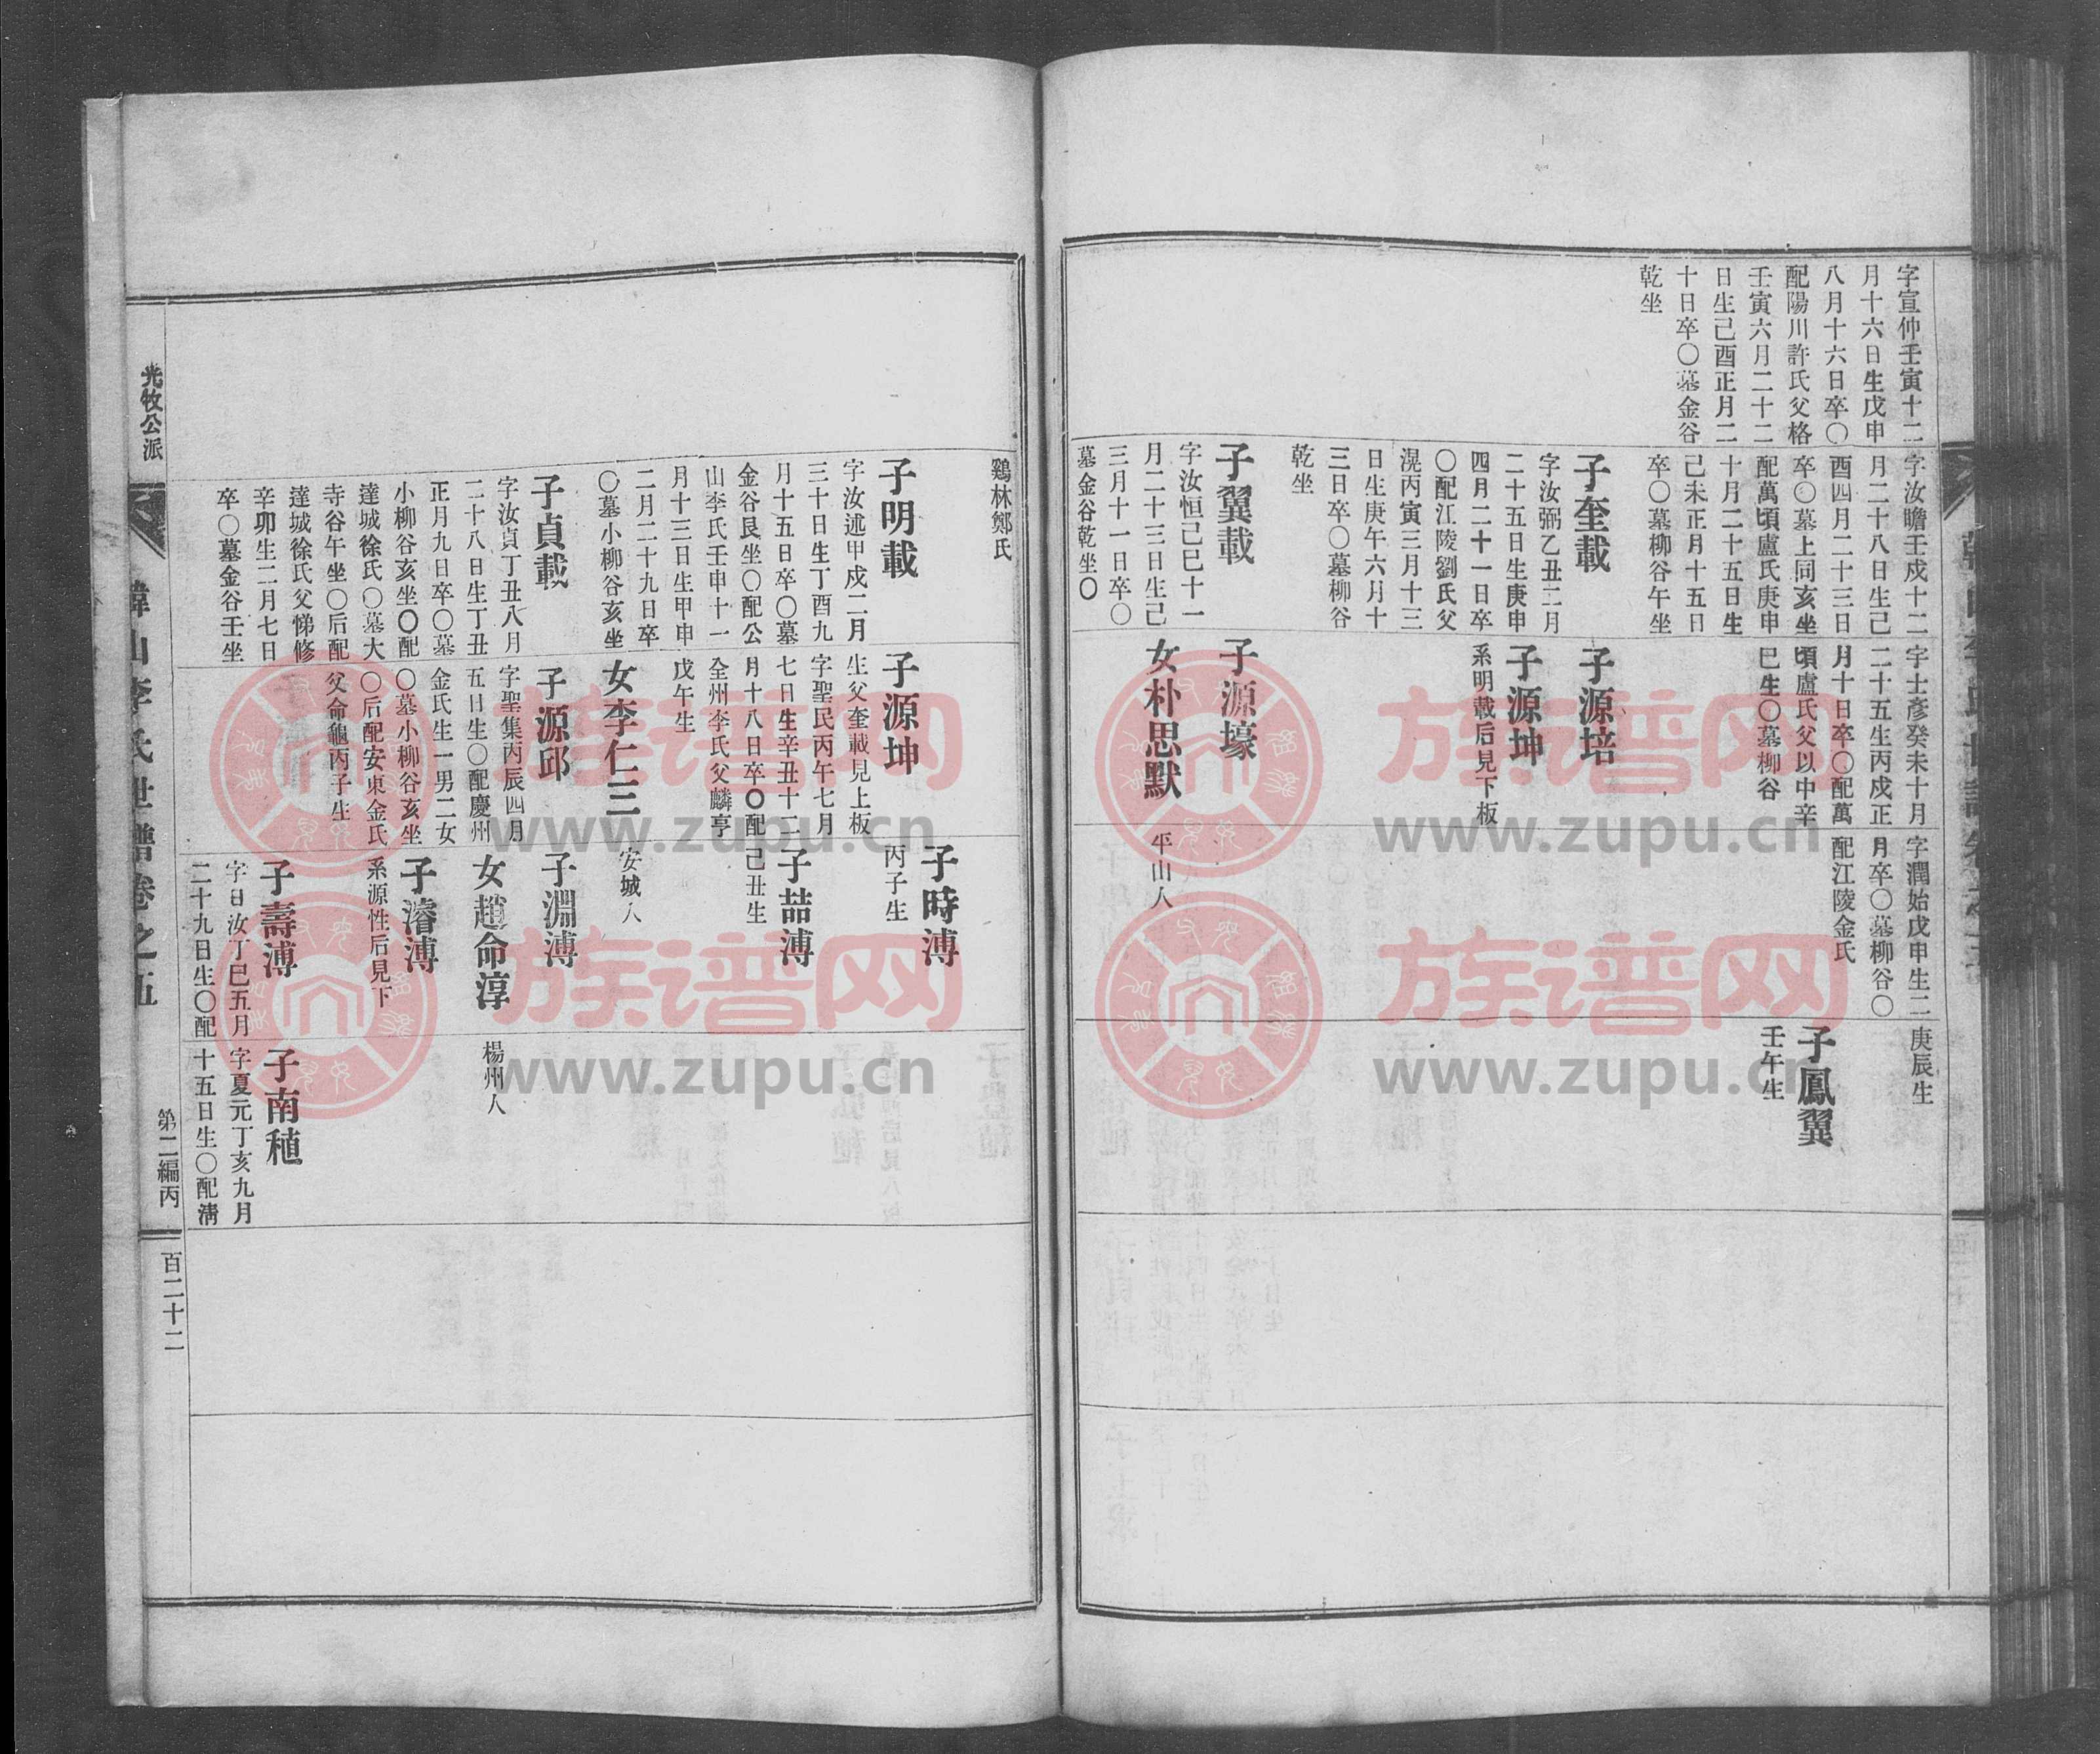 字宣仲壬寅十二
月十六日生戊申
八月十六日卒〇
配陽川許氏父格
壬寅六月二十二
日生己酉正月二
十日卒〇墓金谷
乾坐
字汝瞻壬戌十二
月二十八日生己
酉四月二十三日
卒〇墓上同亥坐
配萬頃盧氏庚申
十月二十五日生
己未正月十五日
卒〇墓柳谷午坐
子奎載
字汝弼乙丑二月
二十五日生庚申
四月二十一日卒
〇配江陵劉氏父
滉丙寅三月十三
日生庚午六月十
三日卒〇墓柳谷
乾坐
子翼載
字汝恒己巳十一
月二十三日生己
三月十一日卒〇
墓金谷乾坐〇
字士彥癸未十月
二十五生丙戌正
月十日卒〇配萬
頃盧氏父以中辛
巳生〇墓柳谷
子源培
子源坤
系明載后見下板
子源壕
女朴思默
字潤始戊申生二
月卒〇墓柳谷〇
配江陵金氏
平山人
庚辰生
子鳳翼
壬午生
鷄林鄭氏
子明載
字汝述甲戌二月
三十日生丁酉九
月十五日卒〇墓
金谷艮坐〇配公
山李氏壬申十一
月十三日生甲申
二月二十九日卒
〇墓小柳谷亥坐
子貞載
字汝貞丁丑八月
二十八日生丁丑
正月九日卒〇墓
小柳谷亥坐〇配
達城徐氏〇墓大
寺谷午坐〇后配
達城徐氏父悌修
辛卯生二月七日
卒〇墓金谷壬坐
子源坤
生父奎載見上板
字聖民丙午七月
七日生辛丑十二
月十八日卒〇配
全州李氏父麟亨
戊午生
女李仁三
子源邱
字聖集丙辰四月
五日生〇配慶州
金氏生一男二女
〇墓小柳谷亥坐
〇后配安東金氏
父命龜丙子生
子時溥
丙子生
子喆溥
己丑生
安城人
子淵溥
女趙命淳
子濬溥
系源性后見下
子壽溥
字日汝丁巳五月
二十九日生〇配
楊州人
子南稙
字夏元丁亥九月
十五日生〇配淸
光牧公派
韓山李氏世譜卷之五
第二編丙
百二十二
族谱网
www.zupu.cn
族谱网
www.zupu.cn
族谱网
www.zupu.cn
族谱网
www.zupu.cn